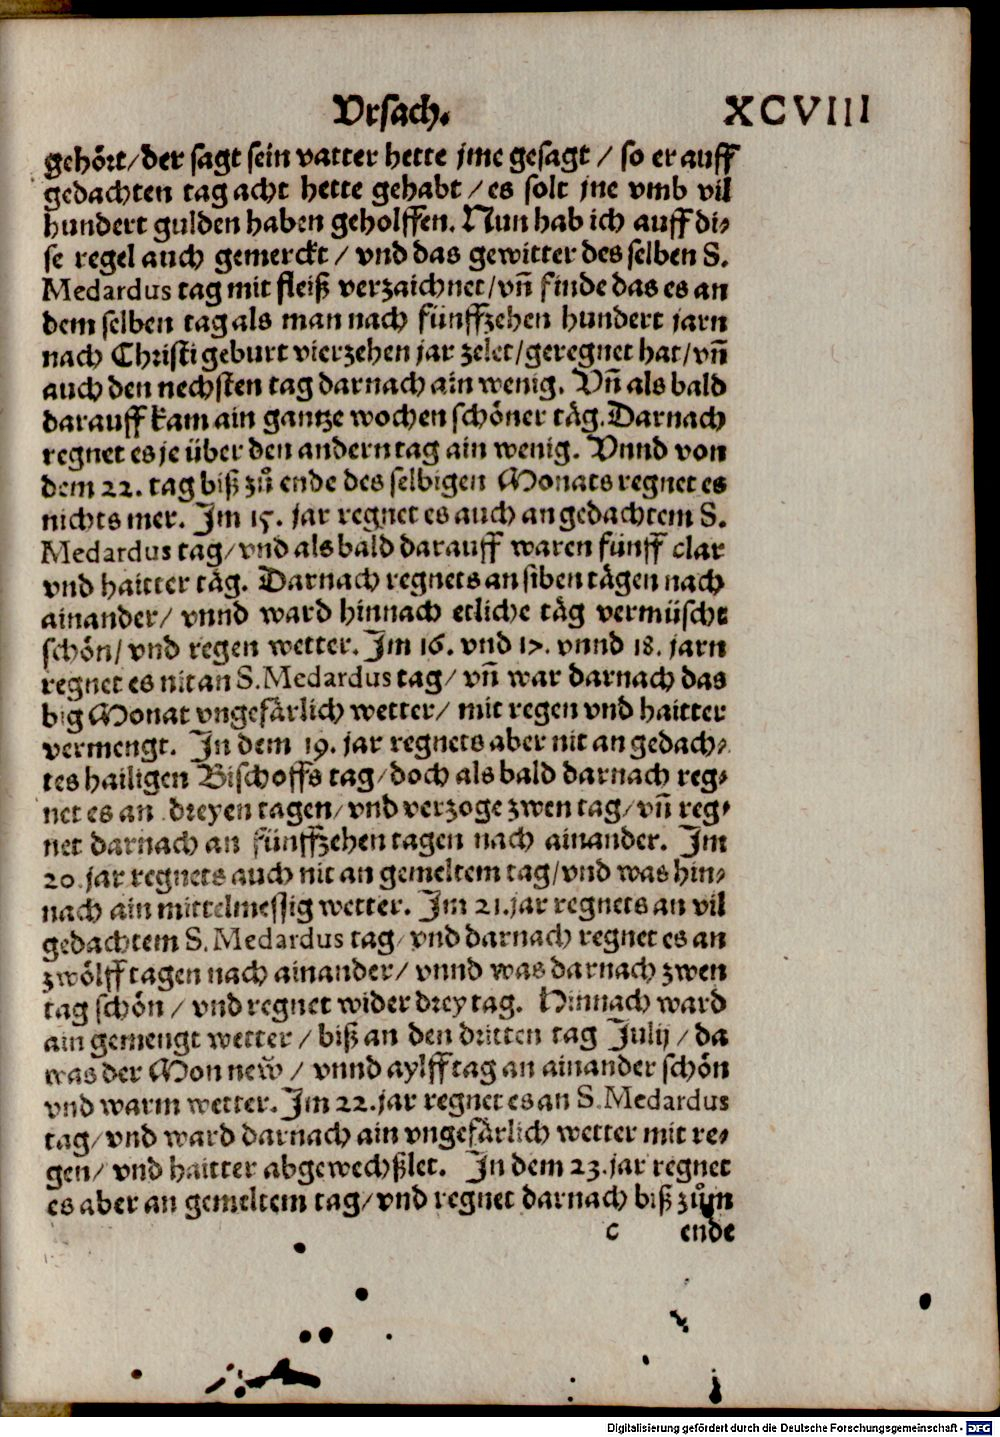 Vrsach. XCVIII
gehört/der sagt sein vatter hette jme gesagt / so er auff
gedachten tag acht hette gehabt / es solt jne vmb vil
hundert gulden haben geholffen. Nun hab ich auff di⸗
se regel auch gemerckt / vnd das gewitter des selben S.
Medardus tag mit fleiß verzaichnet/vñ finde das es an
dem selben tag als man nach fünffzehen hundert jarn
nach Christi geburt vierzehen jar zelet/geregnet hat/vñ
auch den nechsten tag darnach ain wenig. Vñ als bald
darauff kam ain gantze wochen schöner täg. Darnach
regnet es je über den andern tag ain wenig. Vnnd von
dem 22. tag biß zů ende des selbigen Monats regnet es
nichts mer. Im 15. jar regnet es auch an gedachtem S.
Medardus tag/vnd als bald darauff waren fünff clar
vnd haitter täg. Darnach regnets an siben tägen nach
ainander/ vnnd ward hinnach etliche täg vermüscht
schön/ vnd regen wetter. Im 16. vnd 17. vnnd 18. jarn
regnet es nit an S. Medardus tag/ vñ war darnach das
big Monat vngefärlich wetter/ mit regen vnd haitter
vermengt. In dem 19. jar regnets aber nit an gedach⸗
tes hailigen Bischoffs tag/doch als bald darnach reg⸗
net es an dreyen tagen/vnd verzoge zwen tag/vñ reg⸗
net darnach an fünffzehen tagen nach ainander. Im
20. jar regnets auch nit an gemeltem tag/vnd was hin⸗
nach ain mittelmessig wetter. Im 21. jar regnets an vil
gedachtem S. Medardus tag/vnd darnach regnet es an
zwölff tagen nach ainander/ vnnd was darnach zwen
tag schön / vnd regnet wider drey tag. Hinnach ward
ain gemengt wetter / biß an den dritten tag Julij / da
was der Mon new̌ / vnnd aylff tag an ainander schön
vnd warm wetter. Im 22. jar regnet es an S. Medardus
tag/vnd ward darnach ain vngefärlich wetter mit re⸗
gen/ vnd haitter abgewechßlet. In dem 23. jar regnet
es aber an gemeltem tag/vnd regnet darnach biß zům
c ende
Digitalisierung gefördert durch die Deutsche Forschungsgemeinschaft - DFG